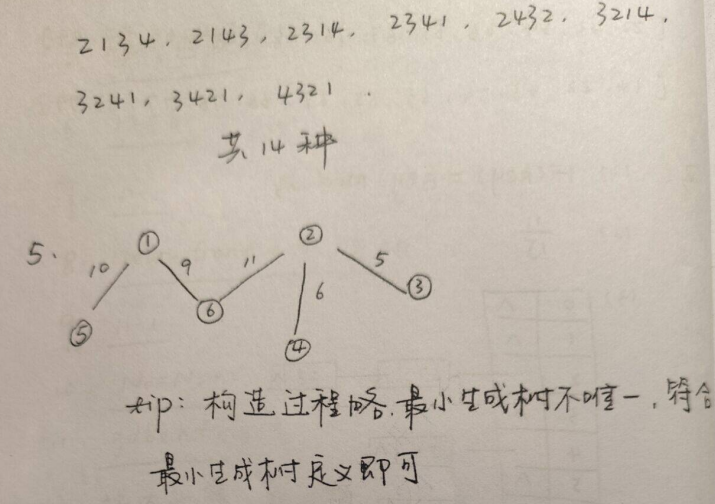 2134, 2143, 2314, 2341, 2432, 3214,
3241, 3421, 4321.
共14种
5.
① ②
10 9 11 5
③
6
⑥
⑤ ④
tip: 构造过程略,最小生成树不唯一,符合
最小生成树定义即可